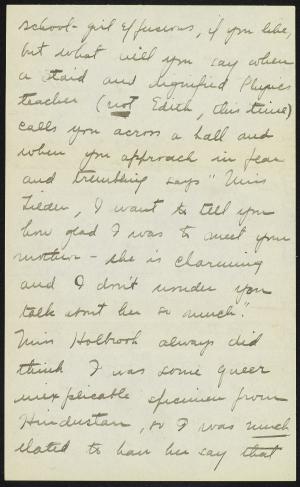 school-girl effusions, if you like,
but what will you say when
a staid and dignified Physics
teacher (not Edith, this time)
calls you across a hall and
when you approach in fear
and trembling says "Miss
Lieder, I want to tell you
how glad I was to meet your
mother - she is charming
and I don't wonder you
talk about her so much".
Miss Holbrook always did
think I was some queer
inexplicable specimen from
Hindustan, so I was much
elated to have her say that